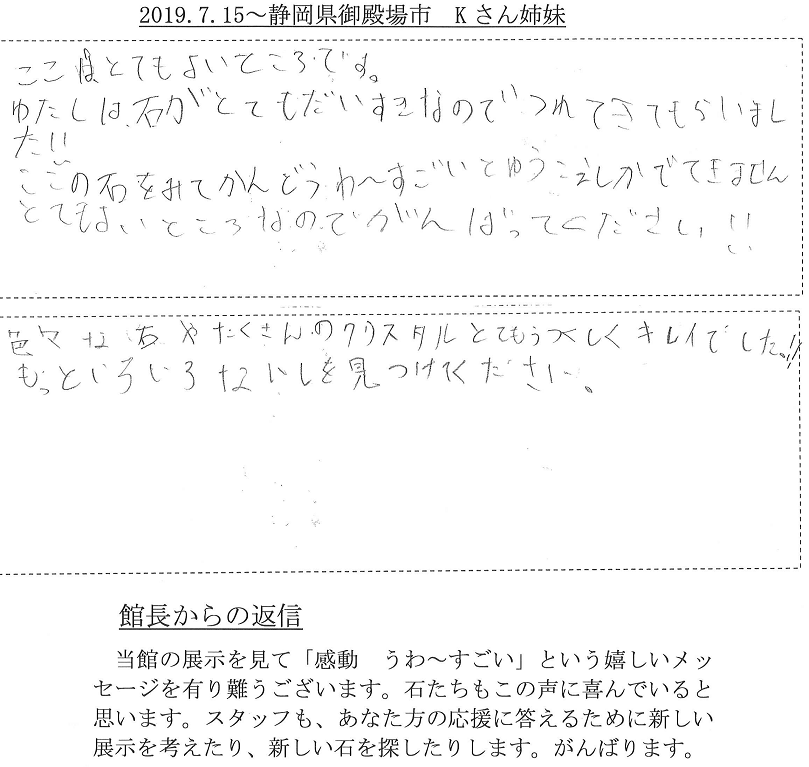 2019.7.15～静岡県御殿場市　Kさん姉妹
ここはとてもよいところです。
わたしは、石がとてもだいすきなのでつれてきてもらいまし
た!!
ここの石をみてかんどうわ～すごいとゆうこえしかでてきません
とてもよいところなのでがんばってください!!
色々な石やたくさんのクリスタルとてもうつくしくキレイでした。!!
もっといろいろないしを見つけてください。
館長からの返信
　当館の展示を見て「感動　うわ～すごい」という嬉しいメッ
セージを有り難うございます。石たちもこの声に喜んでいると
思います。スタッフも、あなた方の応援に答えるために新しい
展示を考えたり、新しい石を探したりします。がんばります。